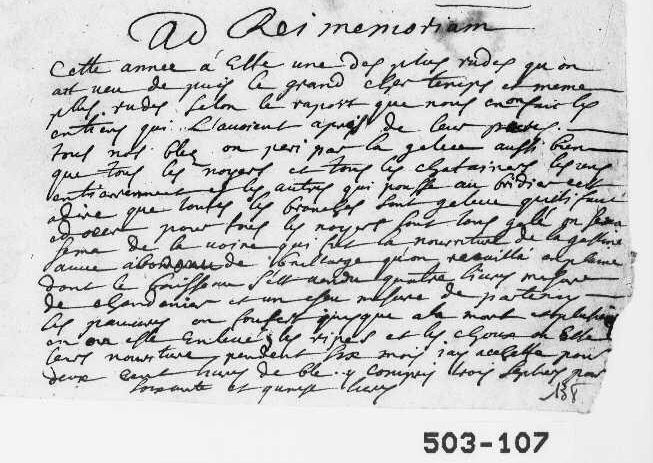 Ad Rei memoriam
Cette année á Esté une des plus rudes qu'on
ait veu depuis le grand cher temps et meme
plus rudes selon le raport que nous en ont fait les
entiens qui l'auoient apris de leur peres.
tous nos bleq on peri par la gelee aussi bien
que tous les noyers et tous les chatainers les uns
entierrement et les autres qui pousse au
adire que toutes les branches sont gelee quil faut
pour tous les noyers sont tous gelé on
seme de la uoine qui fut la nourriture de la gastine
auec abondance de qu'on recuilli
dont le bouisseau s'est uandu quatre liures mesure
de chandenier et un escu mesure de partenay
les pauures on soufert jusque a la mort
on les et les choux on Esté
leurs nouriture pendent six mois jay acheté pour
deux cent liures de blé y compris trois septiers pour
soixante et quinze liures
138
503-107